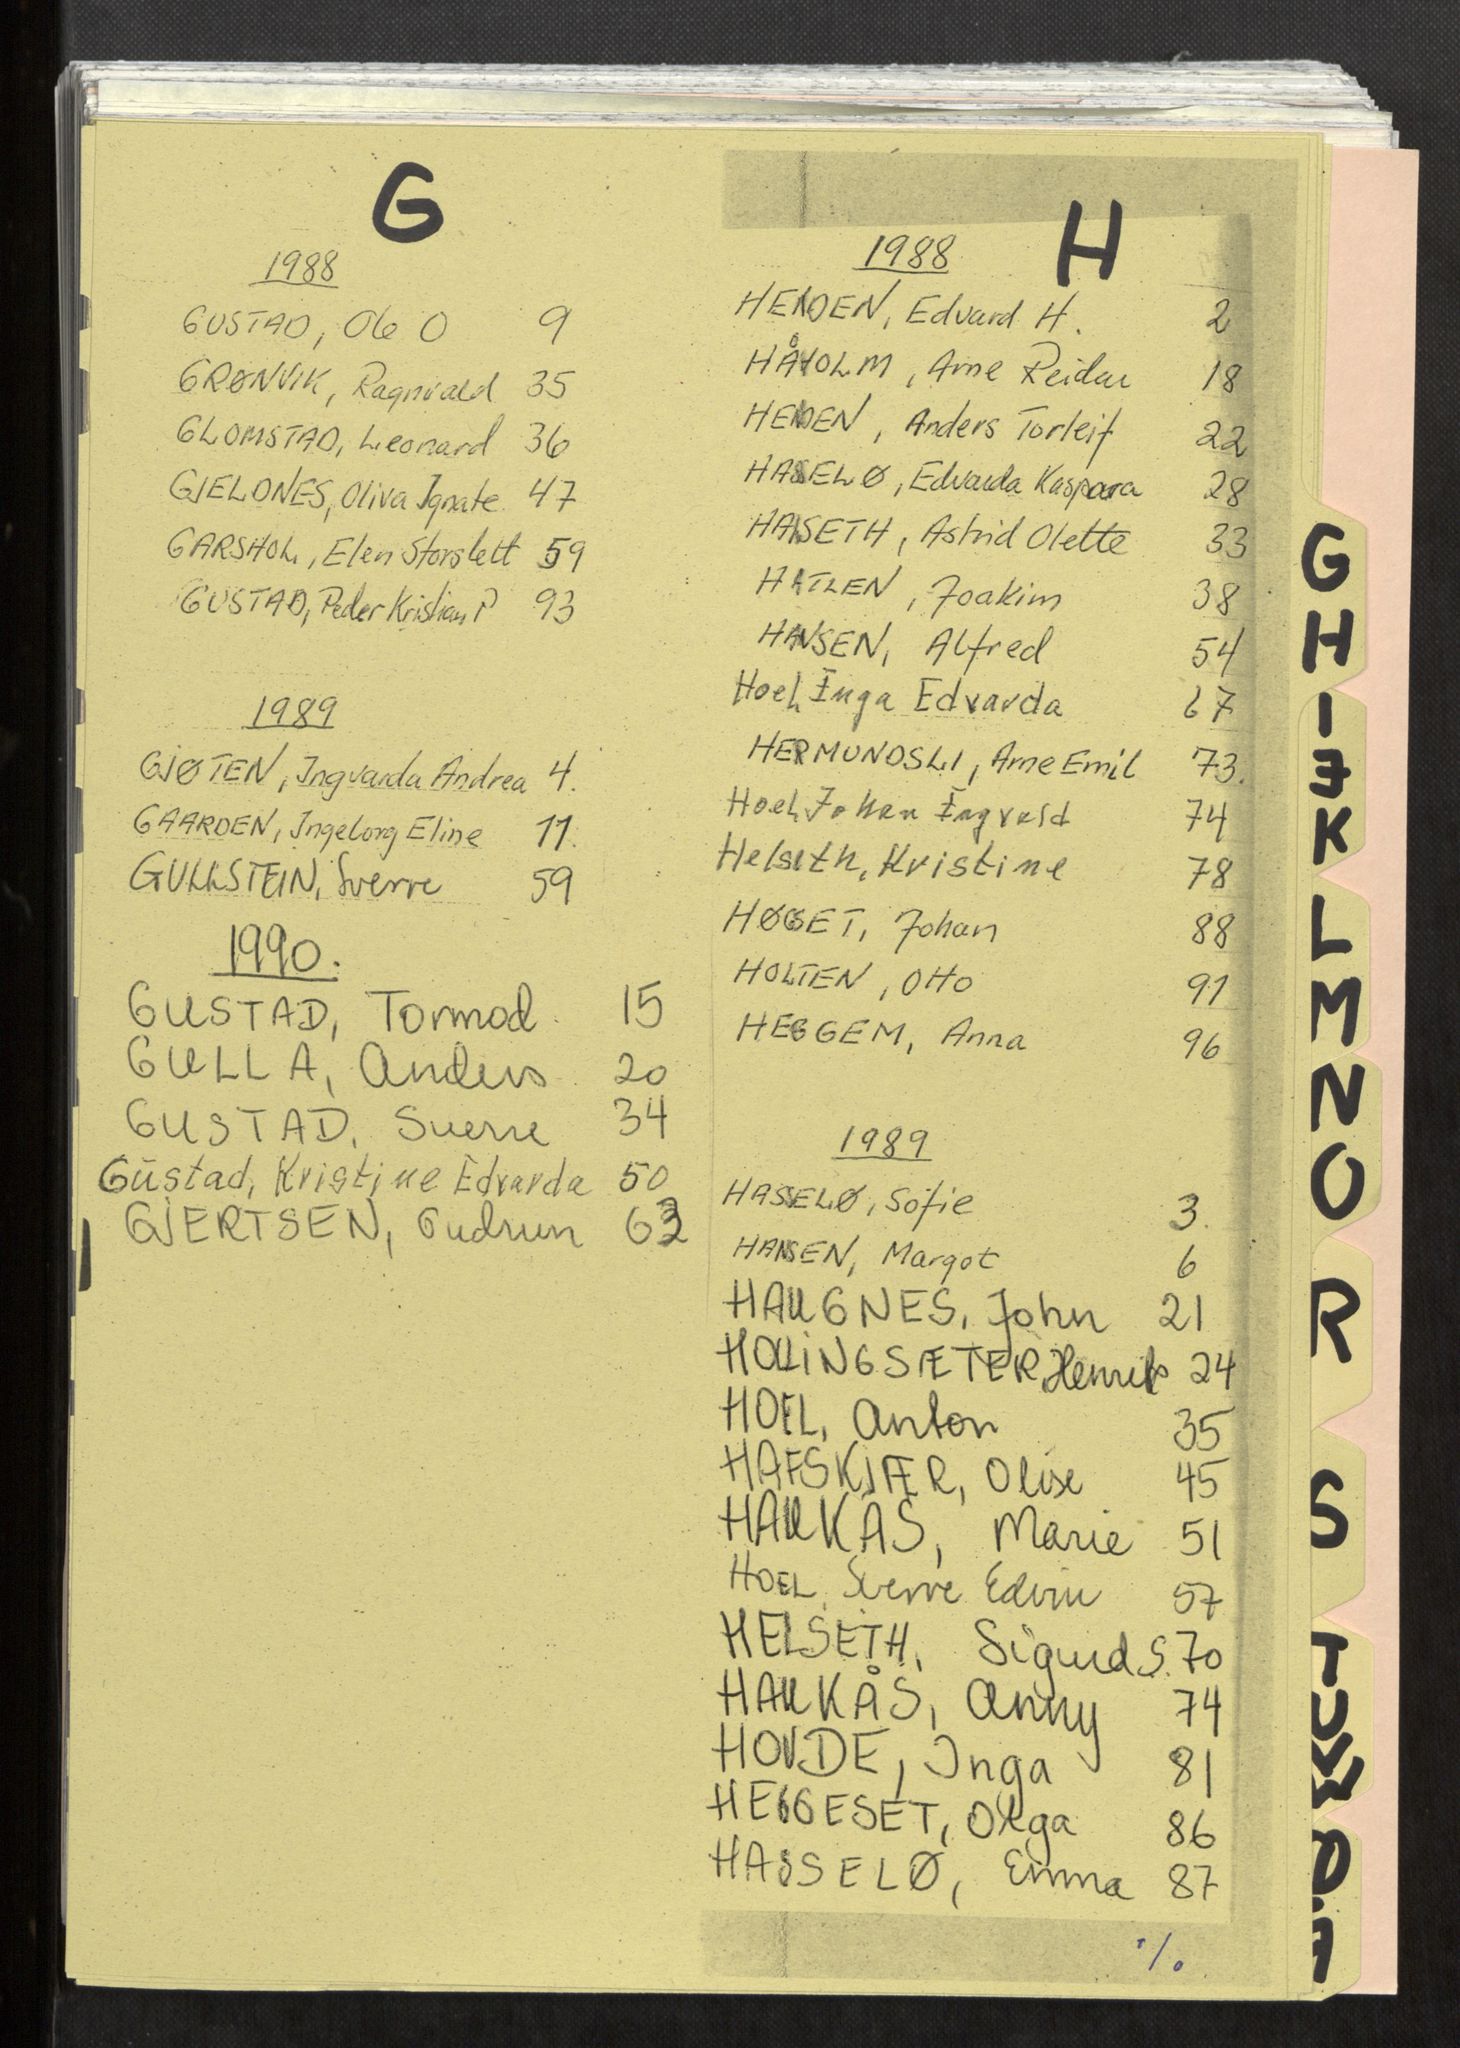 G
1988
GUSTAD, Ole O 9
GRØNVIK, Ragnvald 35
GLOMSTAD, Leonard 36
GJELDNES, Oliva Ignate 47
GARSHOL, Elen Storslett 59
GUSTAD, Peder Kristian P 93
1989
GJØTEN, Ingvarda Andrea 4.
GAARDEN, Ingeborg Eline 11.
GULLSTEIN, Sverre 59
1990.
GUSTAD, Tormod 15
GULLA, Anders 20
GUSTAD, Sverre 34
Gustad, Kristine Edvarda 50
GJERTSEN, Gudrun
H
1988
HENDEN, Edvard H. 2
HÅHOLM, Arne Reidar 18
HENDEN, Anders Torleif 22
HASSELØ, Edvarda Kaspara 28
HALSETH, Astrid Olette 33
HATLEN, Joakim 38
HANSEN, Alfred 54
Hoel, Inga Edvarda 67
HERMUNDSLI, Arne Emil 73.
Hoel, Johan Ingvald 74
Helseth, Kristine 78
HØGSET, Johan 88
HOLTEN, Otto 91
HEGGEM, Anna 96
1989
HASSELØ, Sofie 3.
HANSEN, Margot 6
HAUGNES, John 21
HOLLINGSÆTER, Henrik 24
HOEL, Anton 35
HAFSKJÆR, Olise 45
HAUKÅS, Marie 51
HOEL, Sverre Edvin 57
HELSETH, Sigurd S. 70
HAUKÅS, Anny 74
HOVDE, Inga 81
HEGGESET, Olga 86
HASSELØ, Emma 87
./.
G
H
I
J
K
L
M
N
O
R
S
T
U
V
W
Ø
Å